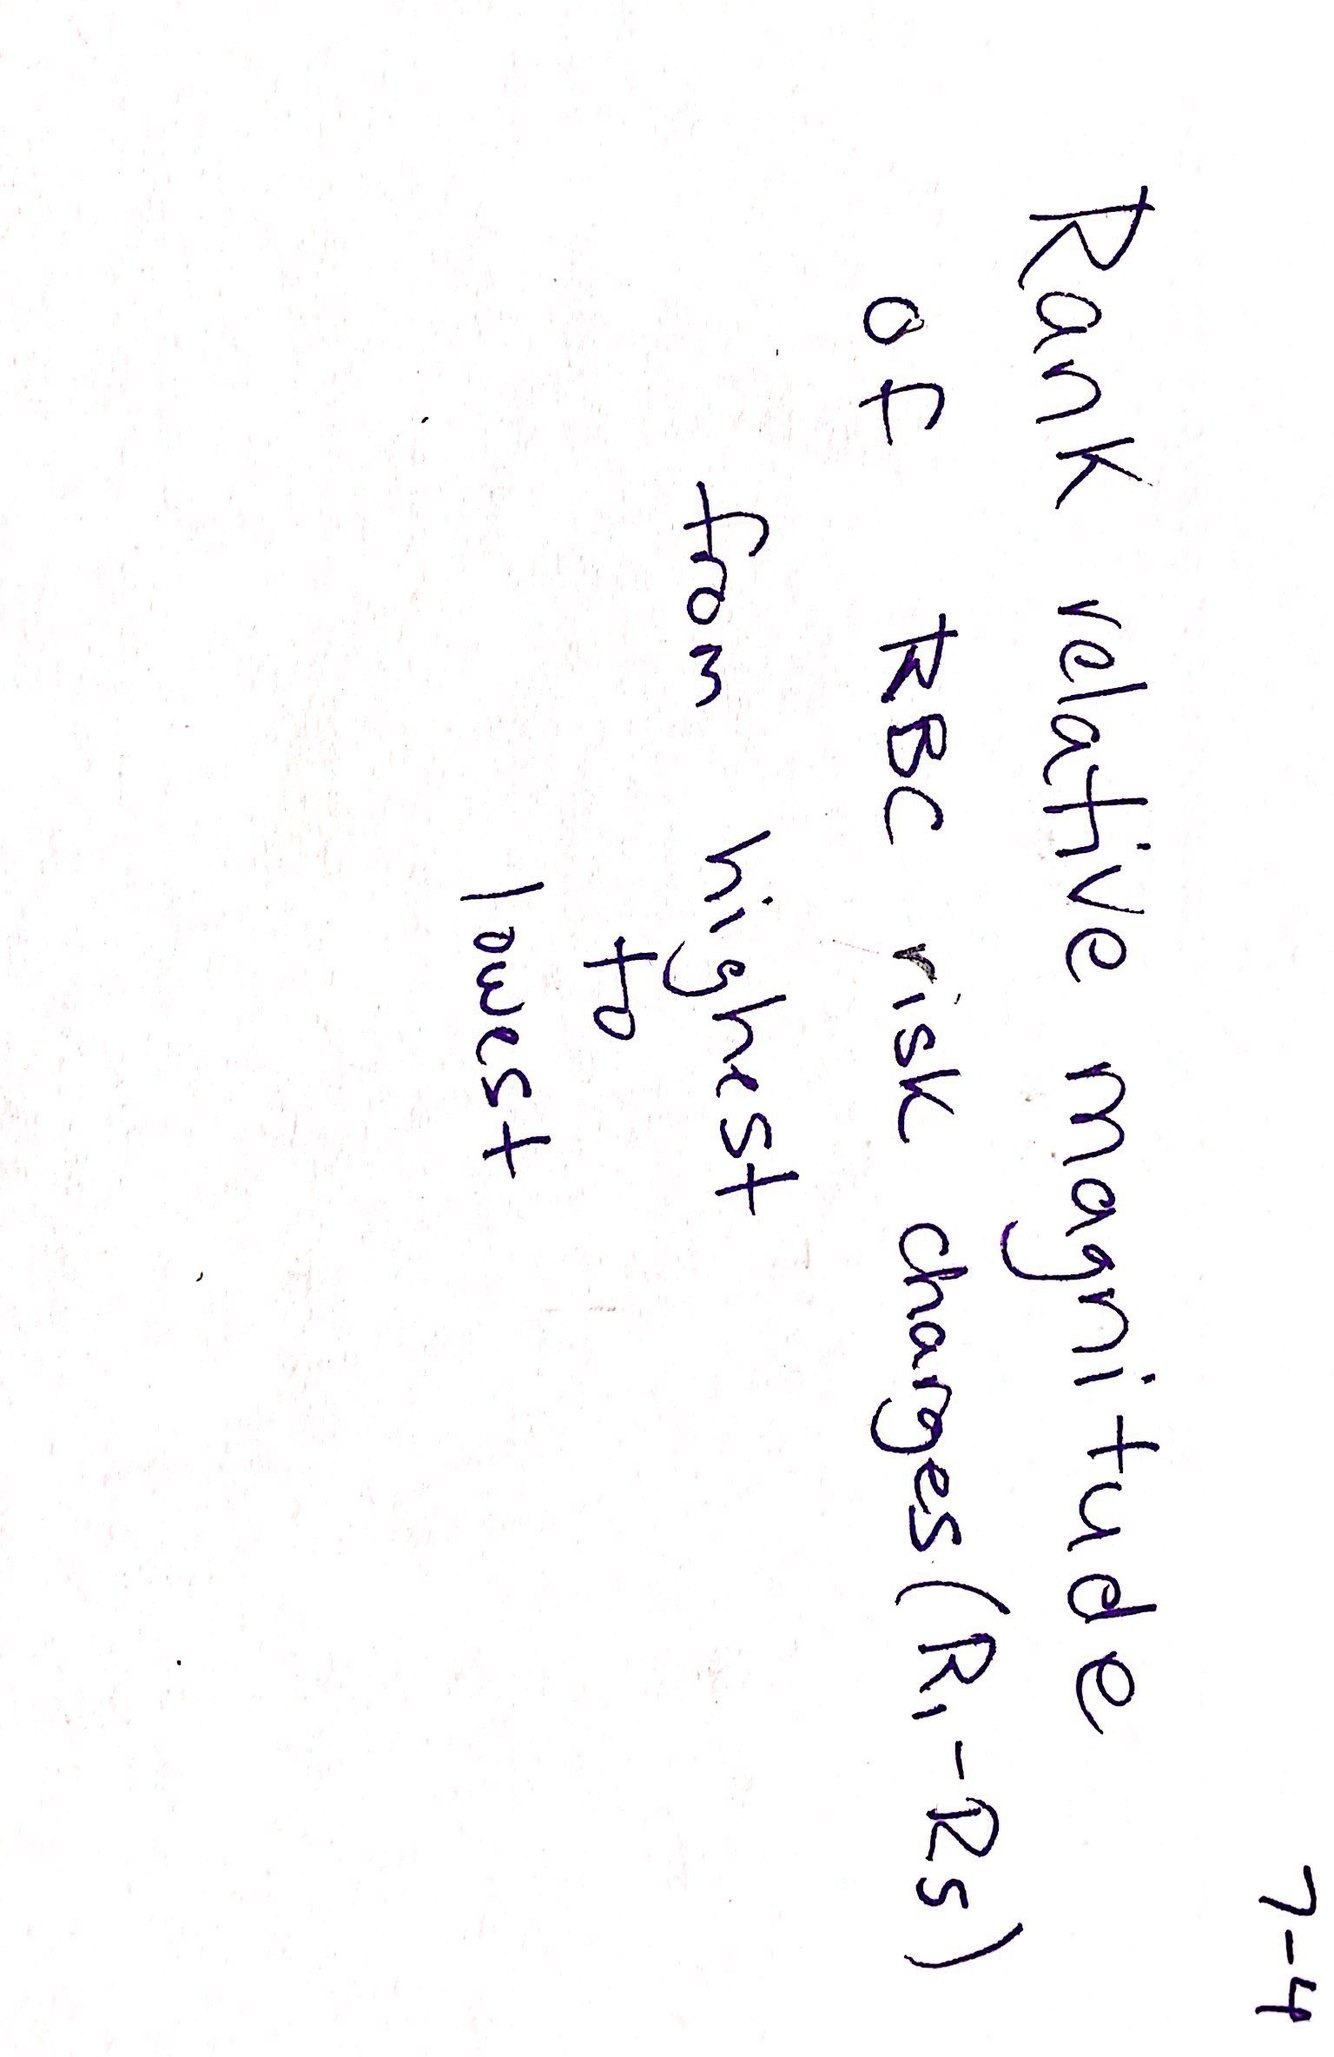 7-4
Rank relative magnitude
of RBC risk charges (R1-R5)
from highest
to
lowest